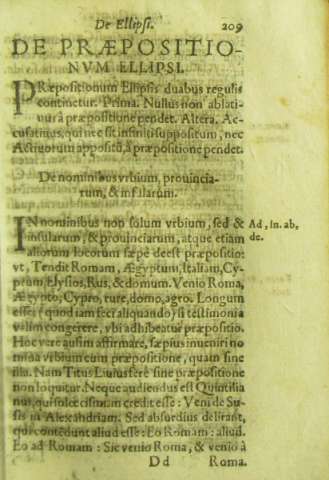 De Ellipsi. 209
DE PRÆPOSITIO-
NVM ELLIPSI.
PRæpositionum Ellipsis duabus regulis
continetur. Prima. Nullus non ablati-
uus à præpositione pendet. Altera. Ac-
cusatiuus, qui nec sit infiniti suppositum, nec
Actiuorum appositũ, à præpositione pendet.
De nominibus vrbium, prouincia-
rum, & insularum.
IN nominibus non solum vrbium, sed &
insularum, & prouinciarum, atque etiam
aliorum locorum sæpè deest præpositio:
vt, Tendit Romam, Ægyptum, Italiam, Cy-
prum, Elysios, Rus, & domum. Venio Roma,
Ægypto, Cypro, rure, domo, agro. Longum
esset (quod iam feci aliquando) si testimonia
velim congerere, vbi adhibeatur præpositio.
Hoc verè ausim affirmare, sæpius inueniri no
mina vrbium cum præpositione, quam sine
illa. Nam Titus Liuius ferè sine præpositione
non loquitur. Neque audiendus est Quintilia
nus, qui solœcismum credit esse: Veni de Su-
sis in Alexandriam. Sed absurdius delirant,
qui contẽdunt aliud esse: Eo Romam: aliud.
Eo ad Romam: Sic venio Roma, & venio à
Dd Roma.
Ad, in, ab,
de.